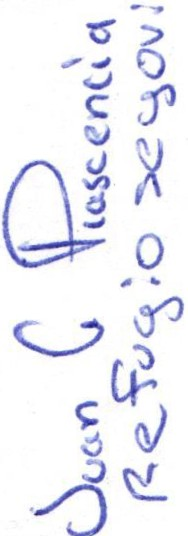 Juan C Plascencia
Refugio xegovi